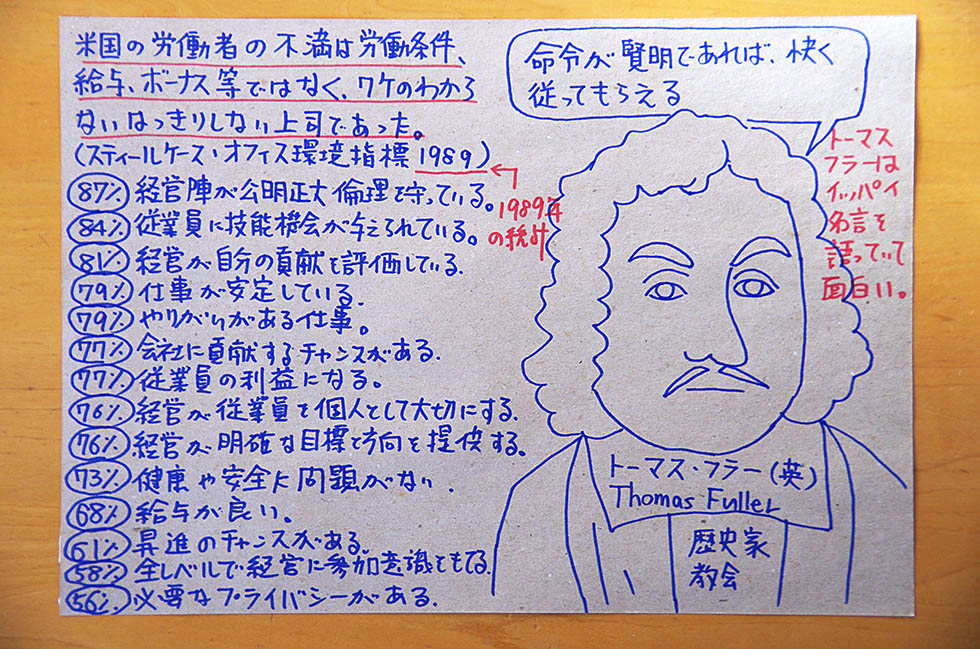 米国の労働者の不満は労働条件、
給与、ボーナス等ではなく、ワケのわから
ないはっきりしない上司であった。
(スティールケース・オフィス環境指標1989)
87% 経営陣が公明正大倫理を守っている。
84% 従業員に技能機会が与えられている。
81% 経営が自分の貢献を評価している.
79% 仕事が安定している.
79% やりがいがある仕事。
77% 会社に貢献するチャンスがある.
77% 従業員の利益になる。
76% 経営が従業員を個人として大切にする.
76% 経営が明確な目標と方向を提供する。
73% 健康や安全に問題がない.
68% 給与が良い。
61% 昇進のチャンスがある。
58% 全レベルで経営に参加意識をもてる.
56% 必要なプライバシーがある.
1989年
の統計
命令が賢明であれば、快く
従ってもらえる
トーマス
フラーは
イッパイ
名言を
語っていて
面白い。
トーマス・フラー(英)
Thomas Fuller
歴史家
教会